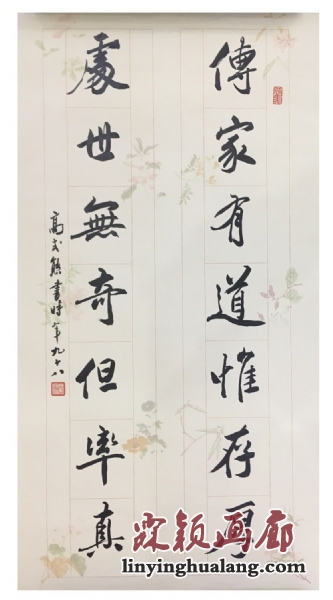 傳家有道惟存厚
處世無奇但率真
高式熊書時年九十八
霖颖画廊
linyinghualang.com